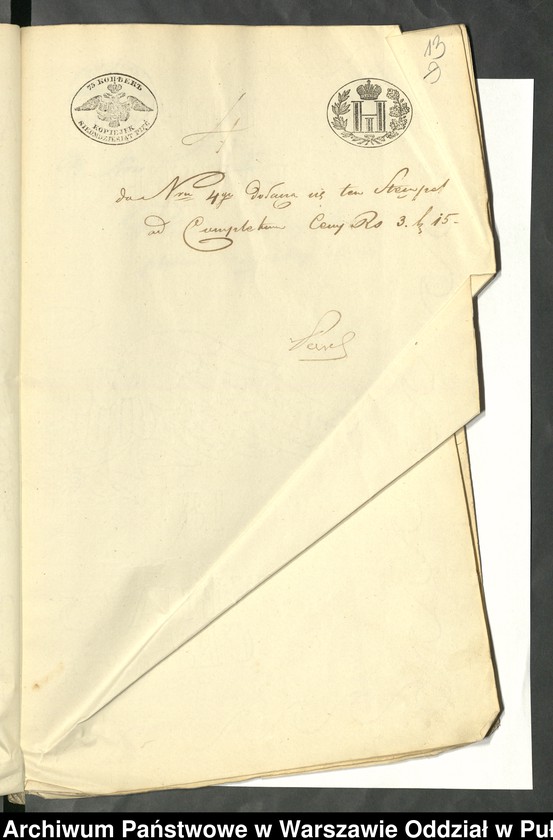 13
9
75 КОПѢЕКЪ
KOPIEJEK
SIEDMDZIESIĄT PIĘĆ
H
I
do Nru 4go dołącza się ten Stempel
ad Completum Ceny Rs 3. k 15-
Archiwum Państwowe w Warszawie Oddział w Puł